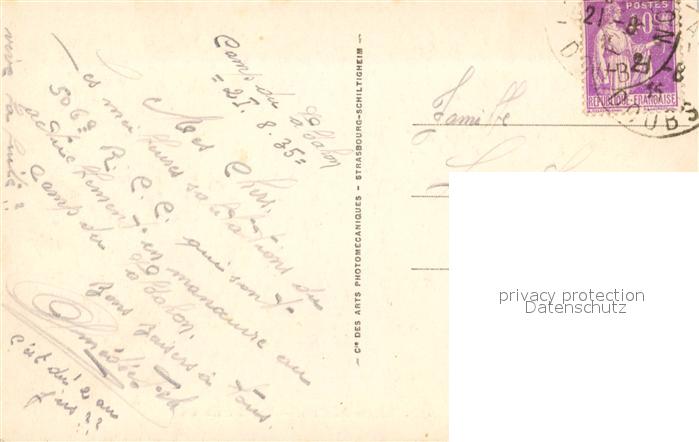 Camp du Valdahon
= 21. 8. 35 =
Mes Chers,
Les meilleures salutations du
506e R. C. C. qui sont
actuellement en manœuvre au
Camp du Valdahon.
Bons baisers à tous.
Amédée
c'est des 2 ans
vive la
!!
— Cie DES ARTS PHOTOMÉCANIQUES — STRASBOURG-SCHILTIGHEIM —
POSTES
REPUBLIQUE-FRANÇAISE
21 - 8
DOUBS
Famille
privacy protection
Datenschutz